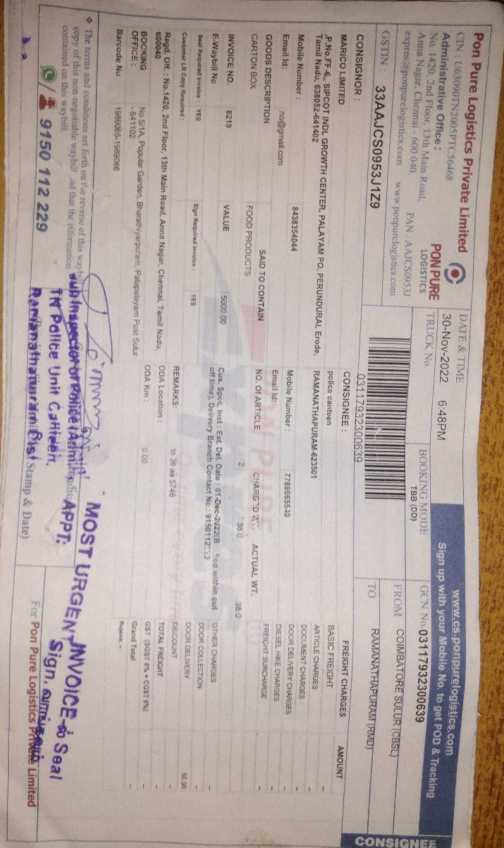 Pon Pure Logistics Private Limited
CIN : U63090TN2005PTC56468
Administrative Office :
No. 1420, 2nd Floor, 13th Main Road,
Anna Nagar, Chennai - 600 040
PAN : AAJCS0953J
express@ponpurelogistics.com www.ponpurelogistics.com
PONPURE
LOGISTICS
GSTIN 33AAJCS0953J1Z9
DATE & TIME
30-Nov-2022 6:48PM
TRUCK No
BOOKING MODE
TBB (DD)
03117932300639
www.cs.ponpurelogistics.com
Sign up with your Mobile No. to get POD & Tracking
GCN No. 03117932300639
FROM COIMBATORE SULUR (CBSL)
TO RAMANATHAPURAM (RMD)
CONSIGNEE
CONSIGNOR :
MARICO LIMITED
,P.No.FF-6, SIPCOT INDL GROWTH CENTER, PALAYAM PO, PERUNDURAI, Erode,
Tamil Nadu, 638052-641402
Mobile Number : 8438354044
Email Id:
GOODS DESCRIPTION SAID TO CONTAIN
CARTON BOX FOOD PRODUCTS
INVOICE NO. 8219 VALUE 5000.00
E-Waybill No
Seal Required Invoice YES Sign Required Invoice YES
Customer LR Copy Required :
Regd. Off. : No.1420, 2nd Floor, 13th Main Road, Anna Nagar, Chennai, Tamil Nadu,
600040
BOOKING
OFFICE :
No 9/1A, Popular Garden, Bharathiyarpuram, Palapalayam Post Sulur
- 641102
Barcode No:
CONSIGNEE :
police canteen
RAMANATHAPURAM-623501
Mobile Number :
Email Id:
NO. OF ARTICLE CHARGED ACTUAL WT.
2 36.0 36.0
Cus. Spcl. Inst : Est. Del. Date : 01-Dec-2022
off time), Delivery Branch Contact No :
REMARKS:
ODA Location :
ODA Km : 0.00
FREIGHT CHARGES AMOUNT
BASIC FREIGHT
ARTICLE CHARGES
DOCUMENT CHARGES
DOOR DELIVERY CHARGES
DIESEL HIKE CHARGES
FREIGHT SURCHARGE
OTHER CHARGES
DOOR COLLECTION
DOOR DELIVERY
DISCOUNT
TOTAL FREIGHT
GST (SGST 6% + CGST 6%)
Grand Total
Rupees -
The terms and conditions set forth on the reverse of this way
copy of this non negotiable waybill and that the information
contained on this waybill
9150 112 229
MOST URGENT
INVOICE & Seal
Sign.
APPT.
TN Police Unit Canteen,
Ramanathapuram Dist
Stamp & Date)
For Pon Pure Logistics Private Limited